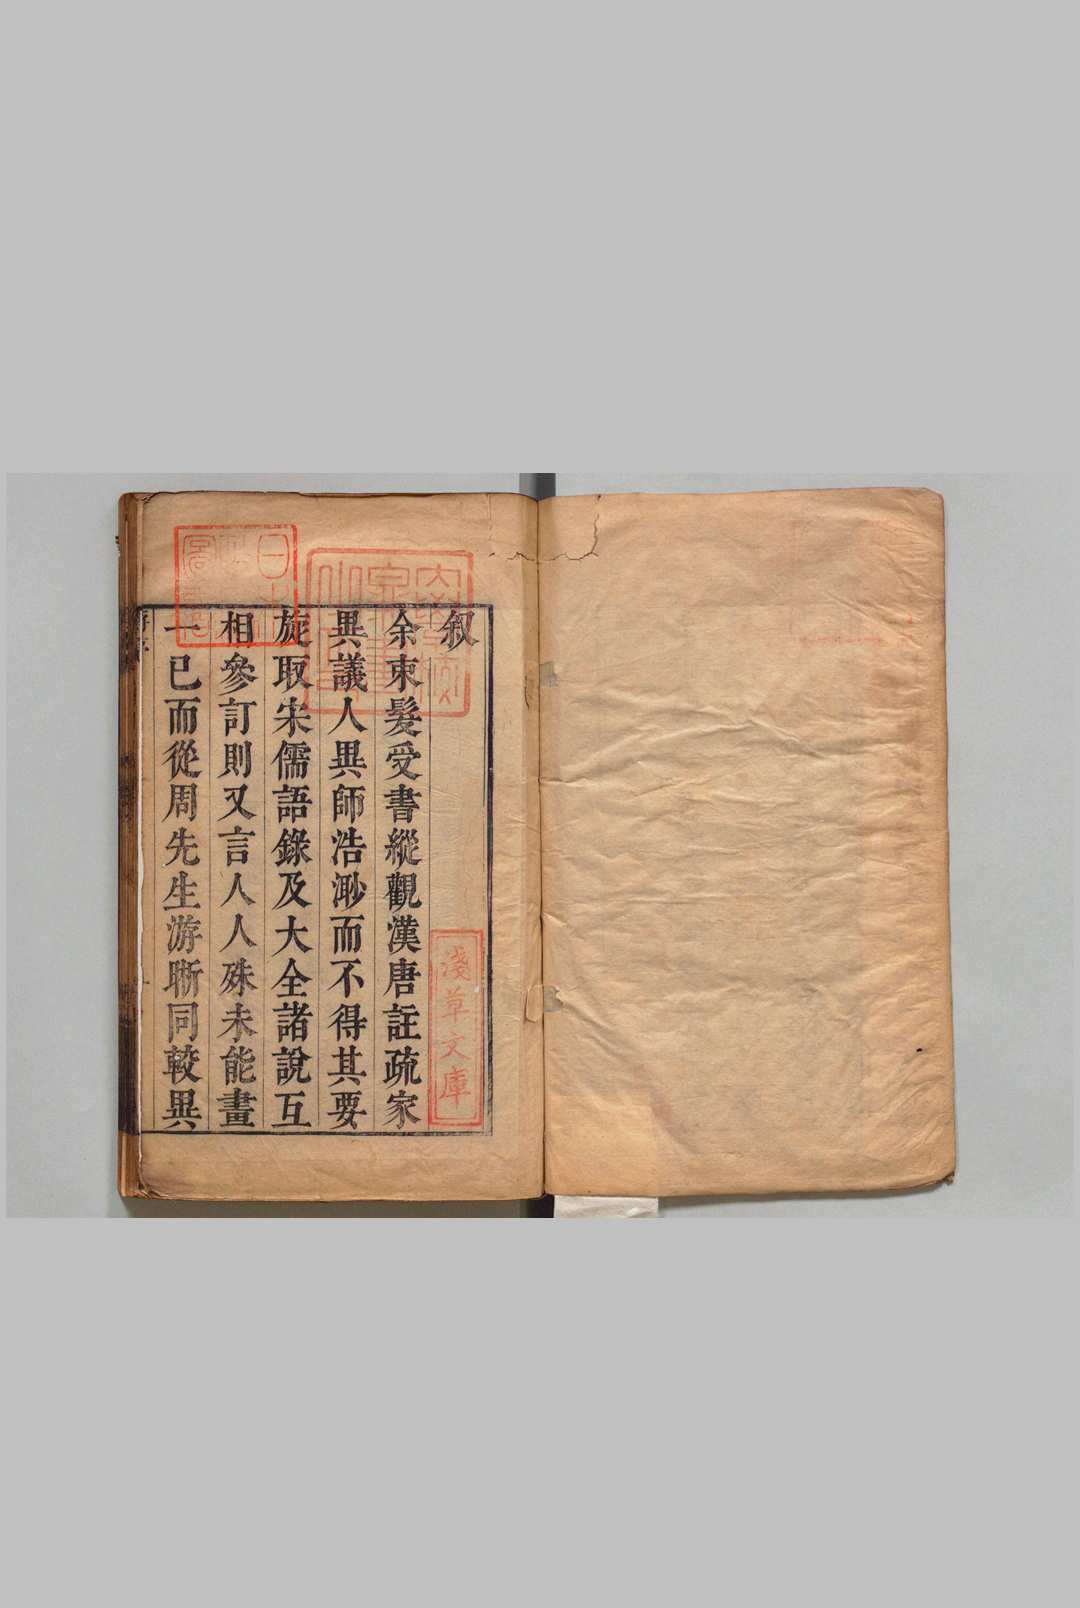 叙
余束髮受書縱觀漢唐註疏家
異議人異師浩渺而不得其要
旋取宋儒語錄及大全諸說互
相參訂則又言人人殊未能畫
一已而從周先生游晰同較異
淺草文庫